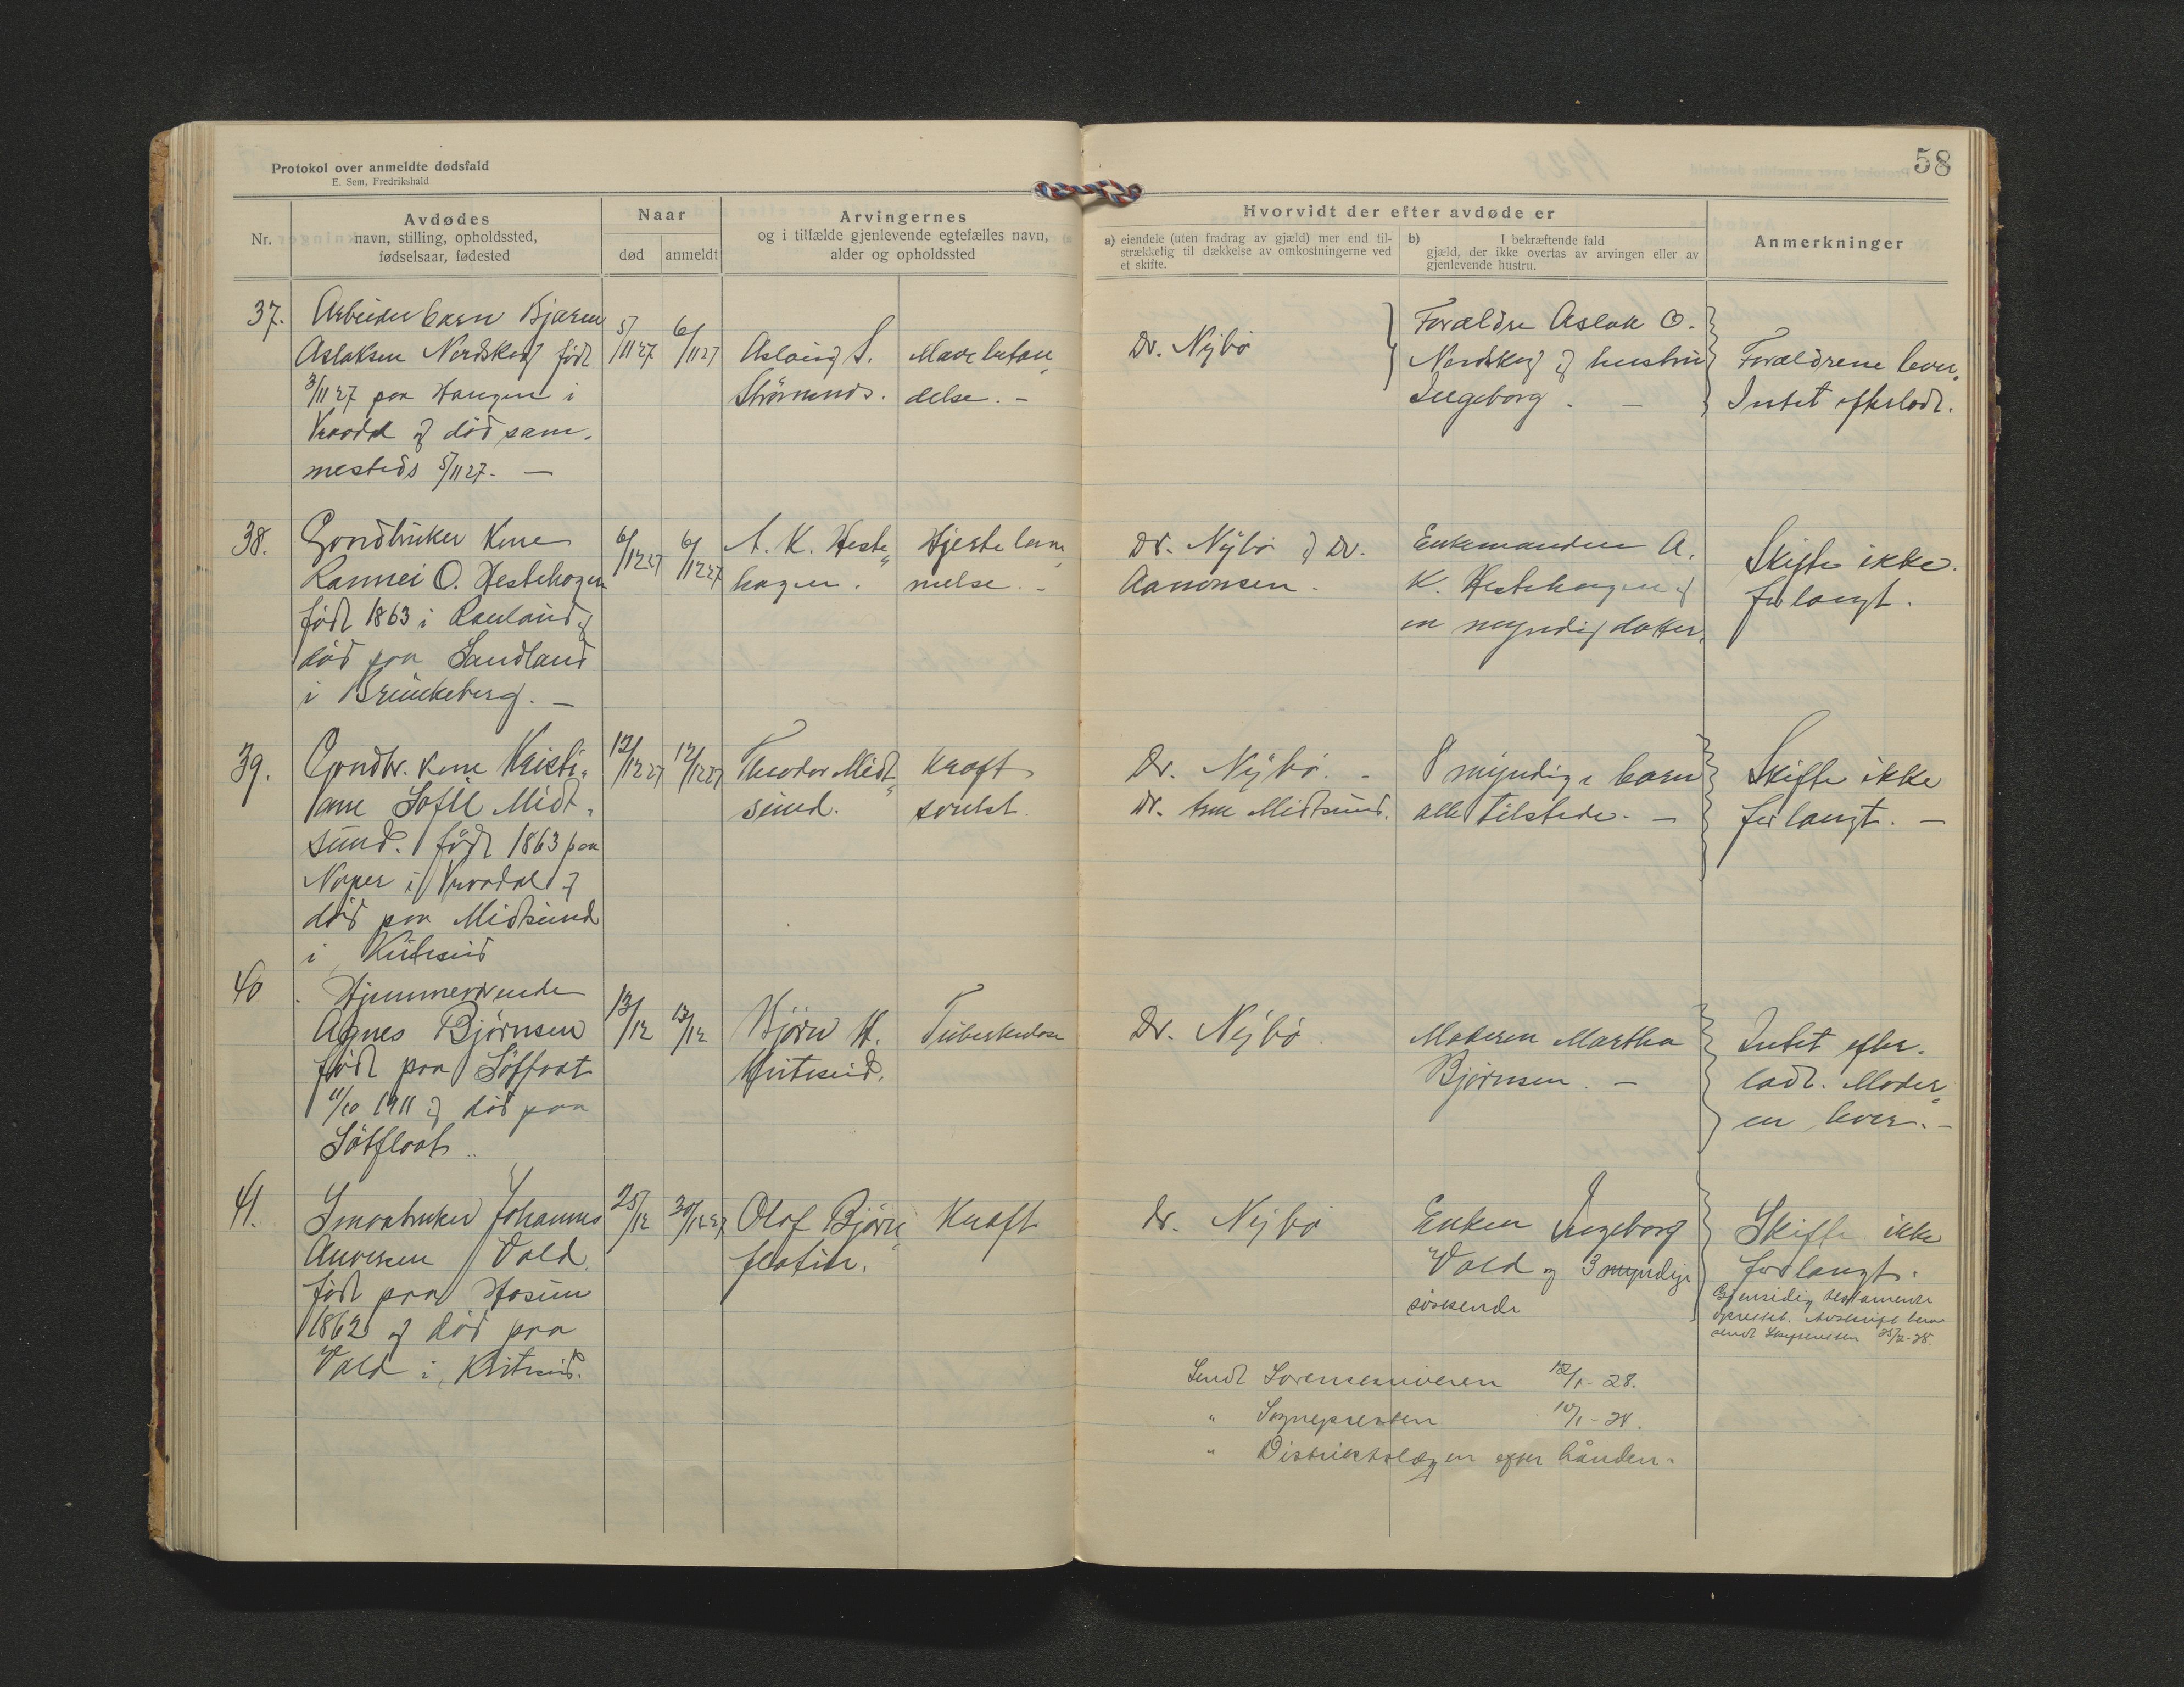 Protokol over anmeldte dødsfald
E. Sem, Fredrikshald
58
Nr.
Avdødes
navn, stilling, opholdssted,
fødselsaar, fødested
Naar
død
anmeldt
Arvingernes
og i tilfælde gjenlevende egtefælles navn,
alder og opholdssted
Hvorvidt der efter avdøde er
a) eiendele (uten fradrag av gjæld) mer end til-
strækkelig til dækkelse av omkostningerne ved
et skifte.
b) I bekræftende fald
gjæld, der ikke overtas av arvingen eller av
gjenlevende hustru.
Anmerkninger
37.
Arbeider barn Bjarne
Aslaksen Nordskog født
3/11 27 paa Haugen i
og død sam-
mesteds 5/11 27. —
5/11 27
6/11 27
Aslaug S.
Strømnes.
Mave betæn„
delse. -
Dr. Nybø
Forældre Aslak O.
Nordskog og hustru
Ingeborg. —
Forældrene lever.
Intet efterladt.
38.
Gardbruker Kone
Rannei O. Hestehagen
født 1863 i Rauland og
død paa Sandland
i Brunkeberg. —
6/12 27
6/12 27
A. K. Heste„
hagen.
Hjerte lam„
melse. -
Dr. Nybø og Dr.
Aanonsen.
Enkemanden A.
K. Hestehagen og
en myndig datter.
Skifte ikke
forlangt.
39.
Gardbr. kone Kristi„
ane Sofie Midt„
sund. født 1863 paa
Naper i Vraadal og
død paa Midtsund
i Kviteseid
12/12 27
12/12 27
Theodor Midt„
sund.
Kræft
Dr. Nybø. -
Dr. Midtsund.
8 myndige barn
alle tilstede. —
Skifte ikke
forlangt. —
40
Hjemmeværende
Agnes Bjørnsen
født paa Sötfloat
11/10 1911 og død paa
Sötfloat
13/12
13/12
Bjørn H.
Kviteseid.
Tuberkulose
Dr. Nybø
Moderen Martha
Bjørnsen. —
Intet efter-
ladt. Moder„
en lever. -
41.
Smaabruker Johannes
Anversen Vold
født paa Hosum
1862 og død paa
Vold i Kviteseid.
25/12
30/12 27
Olaf Bjørn„
flatin.
Kræft
Dr. Nybø
Enken Ingeborg
Vold og 3 myndige
søskende
Skifte ikke
forlangt.
Gjensidig testamente
oprettet. Avskrift herav
sendt
Sendt Sorenskriveren 12/1 - 28.
" Sognepresten 10/1 - 28.
" Distriktslægen efter hånden.